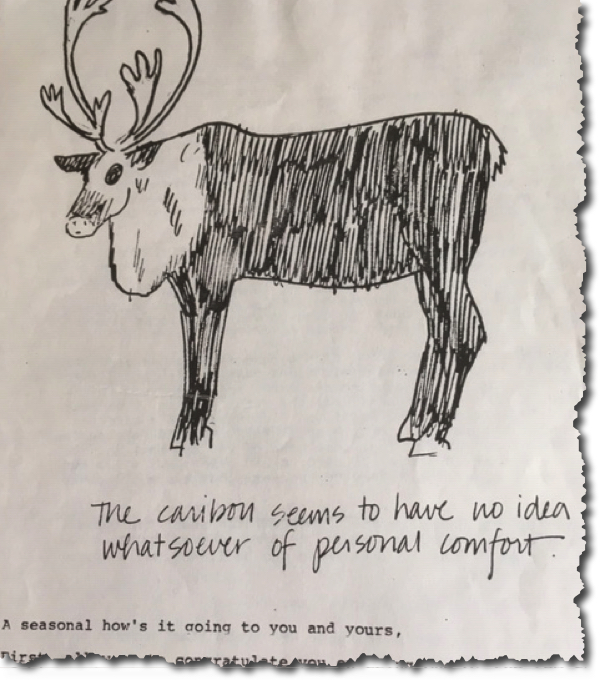 The caribou seems to have no idea
whatsoever of personal comfort.
A seasonal how's it going to you and yours,
congratulate you